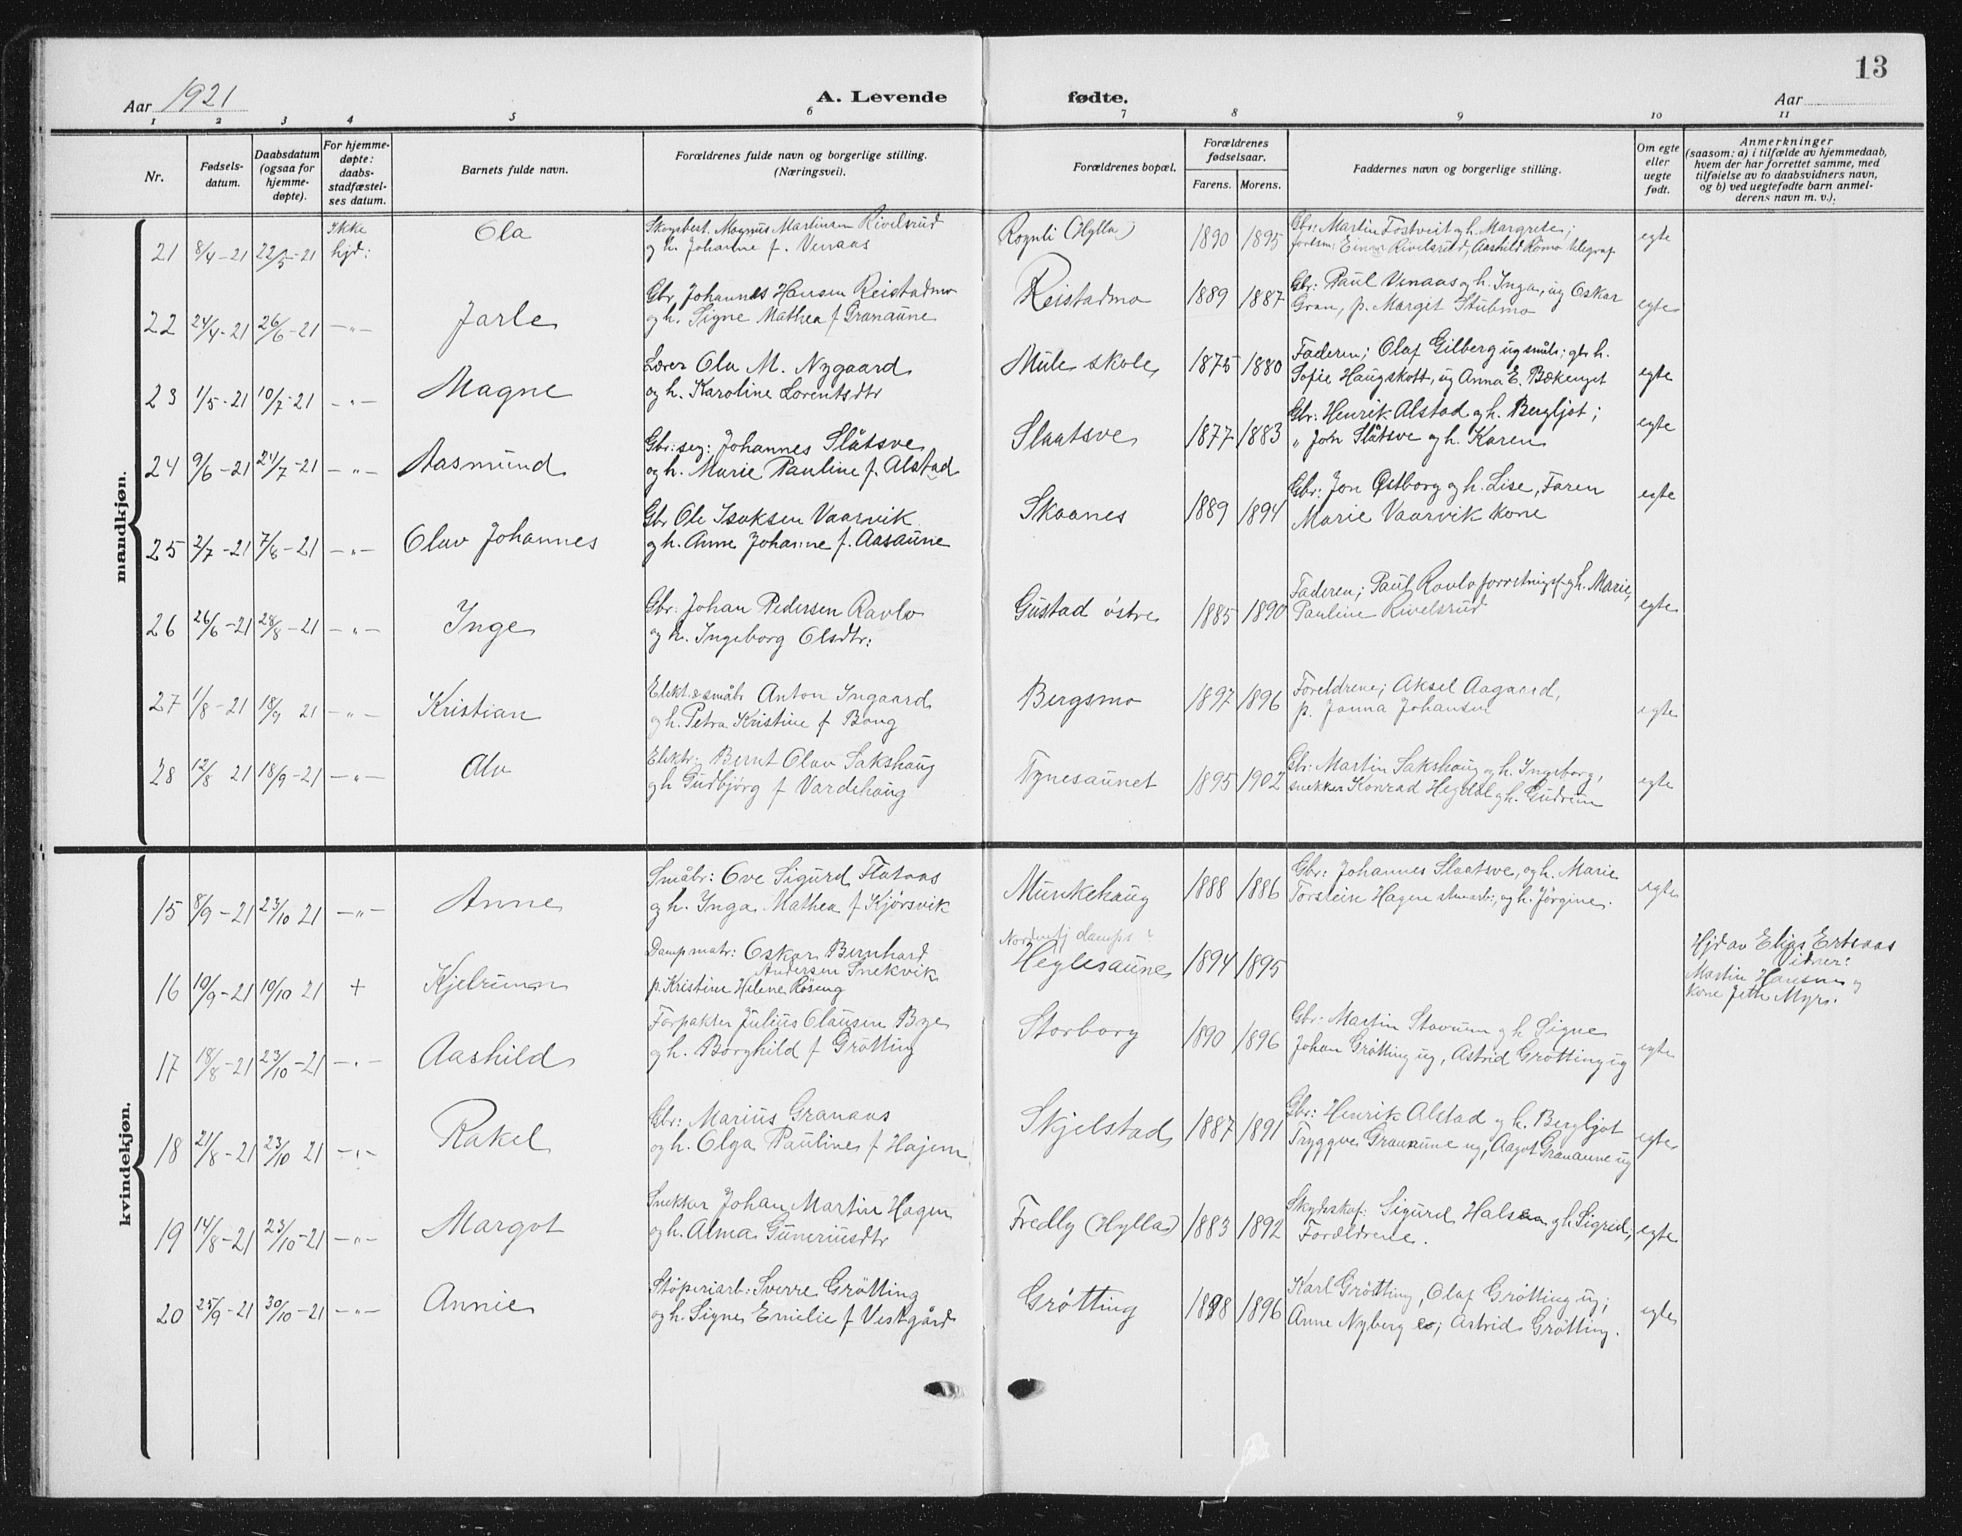 13
Aar 1921
A. Levende fødte.
Aar
1 2 3 4 5 6 7 8 9 10 11
Nr.
Fødsels-
datum.
Daabsdatum
(ogsaa for
hjemme-
døpte).
For hjemme-
døpte:
daabs-
stadfæstel-
ses datum.
Barnets fulde navn.
Forældrenes fulde navn og borgerlige stilling.
(Næringsvei).
Forældrenes bopæl.
Forældrenes
fødselsaar.
Farens. Morens.
Faddernes navn og borgerlige stilling.
Om egte
eller
uegte
født.
Anmerkninger
(saasom: a) i tilfælde av hjemmedaab,
hvem der har forrettet samme, med
tilføielse av to daabsvidners navn,
og b) ved uegtefødte barn anmel-
derens navn m. v.).
mandkjøn.
21 8/4-21 22/5-21 Ikke hjd: Ola
Skogsbert. Magnus Martinsen Rivelsrud
og h. Johanne f. Venaas
Rognli (Hylla) 1890 1895
Gbr. Martin Tostveit og h. Margrete;
Einar Rivelsrud, Aashild Römo telegraf
egte
22 24/4-21 26/6-21 -"- Jarle
Gbr. Johannes Hansen Reistadmo
og h. Signe Mathea f Granaune
Reistadmo 1889 1887
Gbr: Paul Venaas og h. Inga, ug Oskar
Gran, p. Margit Stubmo
egte
23 1/5-21 10/7-21 -"- Magne
Lærer Ola M. Nygaard
og h. Karoline Lorentsdtr
Mule skole 1875 1880
Faderen; Olaf Gilberg ug småb; gbr h.
Sofie Haugskott, ug Anna E. Bækenget
egte
24 9/6-21 24/7-21 -"- Aasmund
Gbr: seg: Johannes Slåtsve
og h. Marie Pauline f. Alstad
Slaatsve 1877 1883
Gbr: Henrik Alstad og h. Bergljot;
" John Slåtsve og h. Karen
egte
25 2/7-21 7/8-21 -"- Olav Johannes
Gbr Ole Isaksen Vaarvik
og h. Anne Johanne f. Aasaune
Skaanes 1889 1894
Gbr: Jon Østborg og h. Lise, Faren
Marie Vaarvik kone
egte
26 26/6-21 28/8-21 -"- Inge
Gbr: Johan Pedersen Ravlo
og h. Ingeborg Olsdtr:
Gustad östre 1885 1890
Faderen; Paul Ravlo forretningsf. og h. Marie,
Pauline Rivelsrud
egte
27 1/8-21 18/9 21 -"- Kristian
Elekt. & småbr Anton Ingaard
og h. Petra Kristine f Bong
Bergsmo 1897 1896
Foreldrene; Aksel Aagaard,
p. Janna Johansen
egte
28 12/8 21 18/9-21 -"- Alv
Elektr: Bernt Olav Sakshaug
og h Gudbjørg f Vardehaug
Tynesaunet 1895 1902
Gbr: Martin Sakshaug og h. Ingeborg,
snekker Konrad Hegdal og h. Gudrun
egte
kvindekjøn.
15 8/9-21 23/10 21 -"- Anne
Småbr: Ove Sigurd Flataas
og h. Inga Mathea f Kjörsvik
Munkehaug 1888 1886
Gbr: Johannes Slaatsve, og h. Marie
Torstein Hagen, og h. Jörgine.
egte
16 10/9-21 19/10 21 + Kjelrunn
Dampmatr: Oskar Bernhard
Andersen Snekvik
p. Kristine Helene Roseng
Heglesaune 1894 1895
Hjd av Elias Ertsaas
Vidner:
Martin Hansen og
kone Myrs.
17 18/8-21 23/10-21 -"- Aashild
Forpakter Julius Clausen Bye
og h. Borghild f Grötting
Storborg 1890 1896
Gbr: Martin Stavrum og h Signe
Johan Grötting ug, Astrid Grötting ug
egte
18 21/8-21 23/10 21 -"- Rakel
Gbr: Marius Granaas
og h. Olga Pauline f Hajem
Skjelstad 1887 1891
Gbr: Henrik Alstad og h. Bergljot
Tryggve Granaune ug, Aagot Granaune ug
egte
19 14/8-21 23/10-21 -"- Margot
Snekker Johan Martin Hagen
og h. Alma Guneriusdtr
Fredly (Hylla) 1883 1892
Skydsskaf: Sigurd Halsen og h Sigrid;
Forældrene.
egte
20 25/9-21 30/10-21 -"- Annie
Støperiarb: Sverre Grötting
og h. Signe Emelie f Vestgård
Grötting 1898 1896
Karl Grötting, Olaf Grötting ug;
Anne Nyberg; Astrid Grötting.
egte